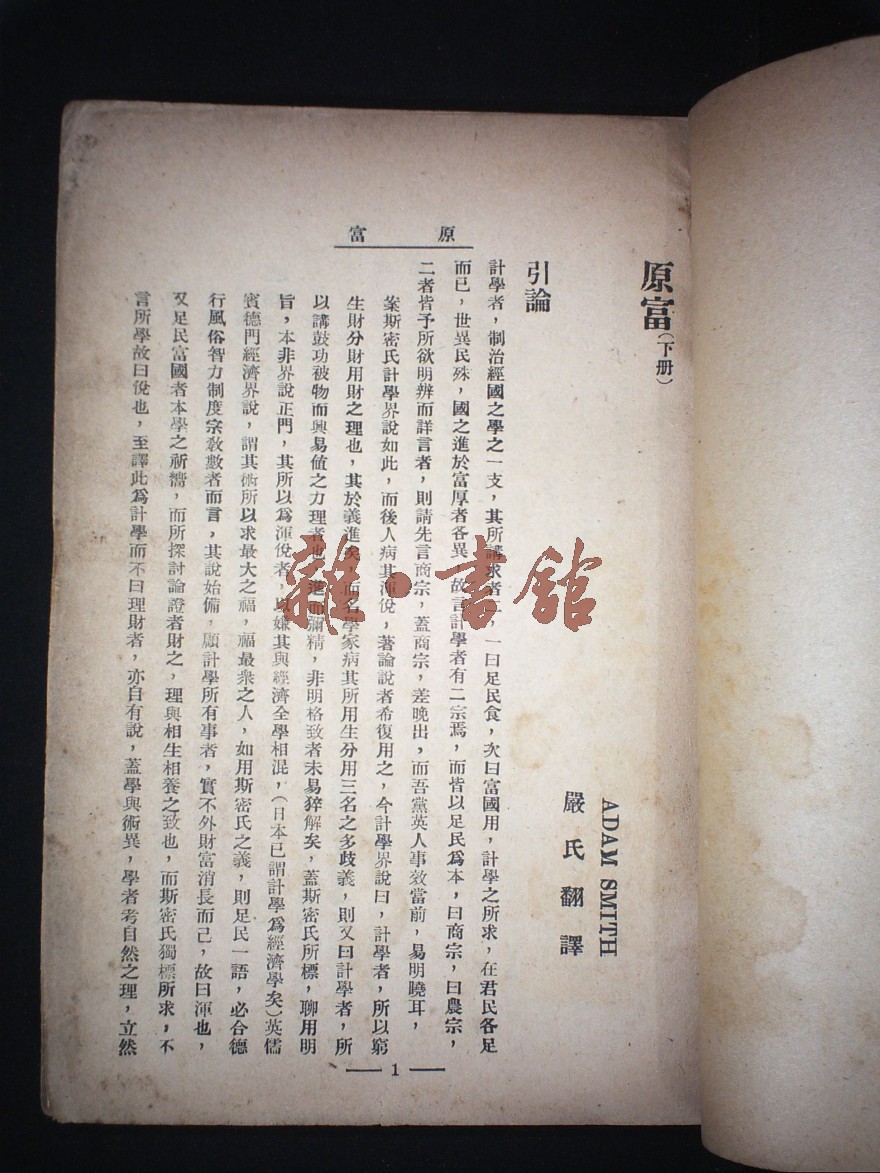 富　原
原富(下册)
ADAM SMITH
嚴氏翻譯
引論
計學者，制治經國之學之一支，其所講求者二，一曰足民食，次曰富國用，計學之所求，在君民各足
而已，世異民殊，國之進於富厚者各異，故言計學者有二宗焉，而皆以足民爲本，曰商宗，曰農宗，
二者皆予所欲明辨而詳言者，則請先言商宗，蓋商宗，差晚出，而吾黨英人事效當前，易明曉耳，
案斯密氏計學界說如此，而後人病其渾侻，著論說者希復用之，今計學界說曰，計學者，所以窮
生財分財用財之理也，其於義進矣，而名學家病其所用生分用三名之多歧義，則又曰計學者，所
以講鼓功被物而興易値之力理者也，進而彌精，非明格致者未易猝解矣，蓋斯密氏所標，聊用明
旨，本非界說正門，其所以爲渾侻者，以嫌其與經濟全學相混，(日本已謂計學爲經濟學矣)英儒
賓德門經濟界說，謂其術所以求最大之福，福最衆之人，如用斯密氏之義，則足民一語，必合德
行風俗智力制度宗教數者而言，其說始備，顧計學所有事者，實不外財富消長而已，故曰渾也，
又足民富國者本學之祈嚮，而所探討論證者財之，理與相生相養之致也，而斯密氏獨標所求，不
言所學故曰侻也，至譯此爲計學而不曰理財者，亦自有說，蓋學與術異，學者考自然之理，立然
1
雜·書館